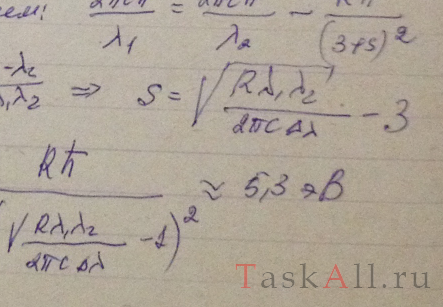 2πcħ/λ₁ = 2πcħ/λ₂ − Rħ/(3+s)²
−λ₂/λ₁λ₂ ⇒ s = √(Rλ₁λ₂/2πcΔλ) − 3
Rħ/(√(Rλ₁λ₂/2πcΔλ) − 1)² ≈ 5,3 эВ
TaskAll.ru